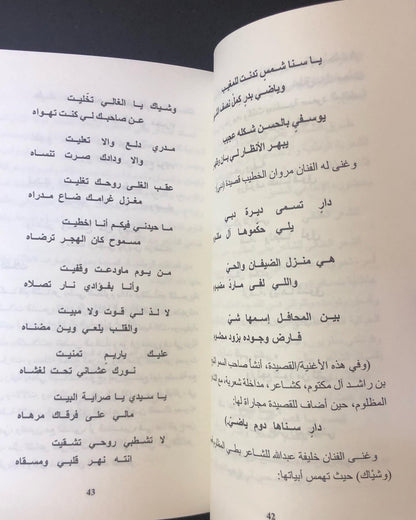 يا سنا شمس تدنت للمغيب
وياضي بدرٍ كمل نصف
يوسفي بالحسن شكله عجيب
يبهر الأنظار لي بان
وغنى له الفنان مروان الخطيب قصيدة
دارٍ تسمى ديرة دبي
يلي حكموها آل
هي منزل الضيفان والحيّ
واللي لفى ماردّ
بين المحافل إسمها شيّ
فارض وجوده بزود
(وفي هذه الأغنية/القصيدة، أنشأ صاحب السمو
بن راشد آل مكتوم، كشاعر، مداخلة شعرية، مع
المظلوم، حين أضاف للقصيدة مجاراة لها:
دارٍ سناها دوم ياضيّ)
وغنى الفنان خليفة عبدالله للشاعر بطي المظلوم
(وشيّاك) حيث تهمس أبياتها:
42
وشياك يا الغالي تخّليت
عن صاحبك لي كنت تهواه
مدري دلع والا تعليت
والا ودادك صرت تنساه
عقب الغلى روحك تغليت
مغزل غرامك ضاع مدراه
ما حيدني فيكم أنا اخطيت
مسموح كان الهجر ترضاه
من يوم ماودعت وقفيت
وأنا بفؤادي نار تصلاه
لا لذ لي قوت ولا مبيت
والقلب يلعي وين مضناه
عليك ياريم تمنيت
نورك عشاني تحت لغشاه
يا سيدي يا صراية البيت
مالي على فرقاك مرهاه
لا تشطبي روحي تشقيت
انته نهر قلبي ومسقاه
43